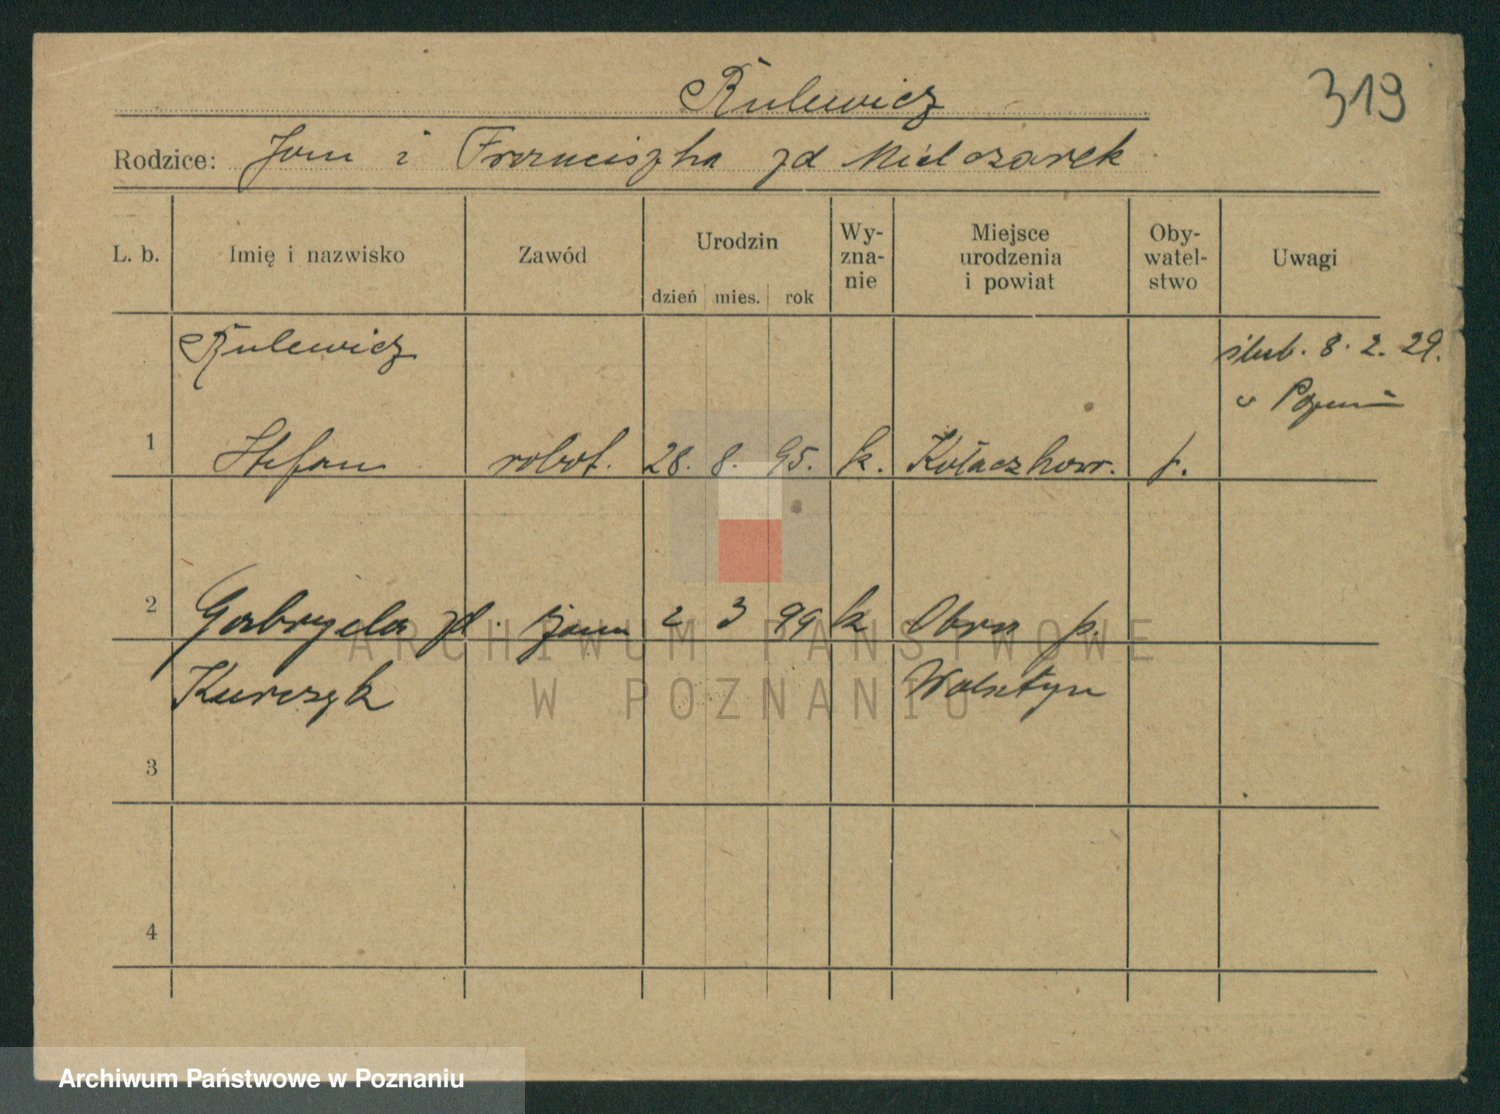 Rulewicz
319
Rodzice: Jan i Franciszka zd Mielczarek
L. b. Imię i nazwisko Zawód Urodzin dzień mies. rok Wy-zna-nie Miejsce urodzenia i powiat Oby-watel-stwo Uwagi
Rulewicz ślub. 8. 2. 29.
w
1 Stefan robot. 28. 8. 95. k. Kołaczkow. p.
2 Gabryela zd. 2 3 99 k Obra p.
Kurczyk Wolsztyn
3
4
ARCHIWUM PAŃSTWOWE
W POZNANIU
Archiwum Państwowe w Poznaniu